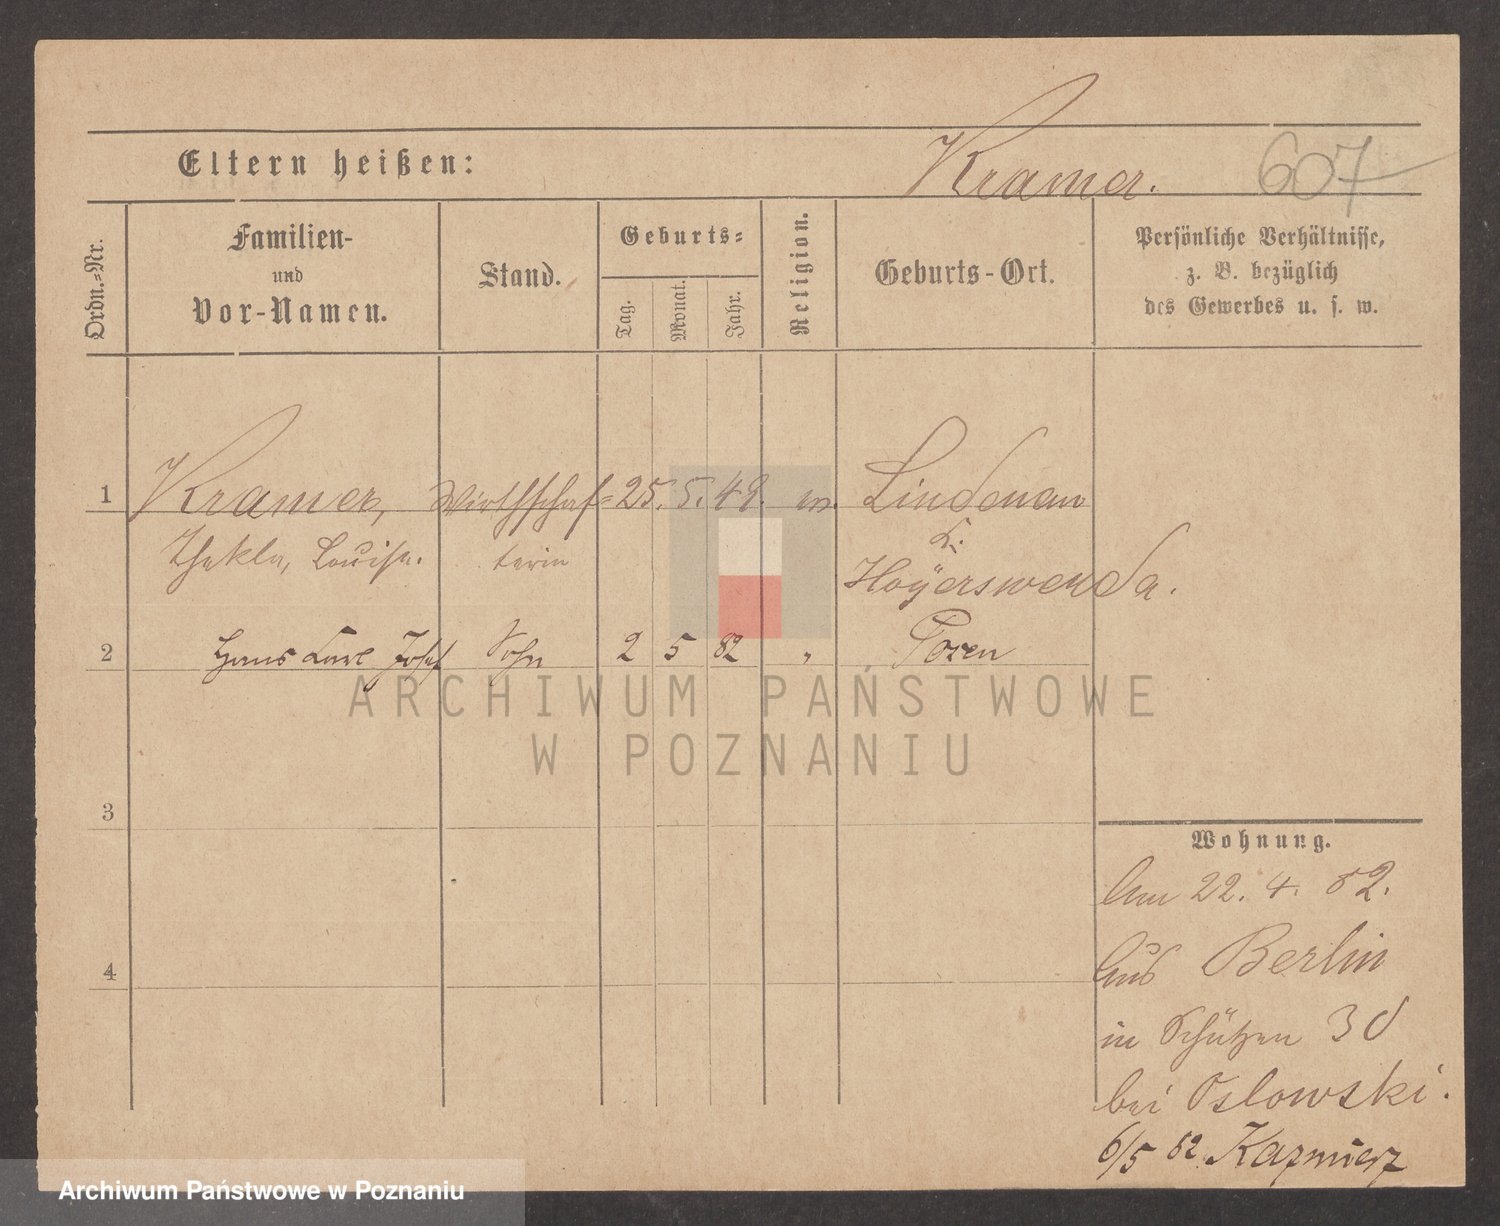 Kramer. 607
Eltern heißen:
Ordn.=Nr.
Familien-
und
Vor-Namen.
Stand.
Geburts=
Tag.
Monat.
Jahr.
Religion.
Geburts-Ort.
Persönliche Verhältnisse,
z. B. bezüglich
des Gewerbes u. s. w.
1 Kramer, Wirthschaf= 25. 5. 49. Lindenau
Thekla, Louise. terin K.
Hoyerswerda.
2 Hans Karl Josef Sohn 2 5 82 " Posen
ARCHIWUM PAŃSTWOWE
W POZNANIU
3
4
Wohnung.
Am 22. 4. 82.
Aus Berlin
in Schützen 30
bei Oslowski.
6/5 82 Kazmierz
Archiwum Państwowe w Poznaniu